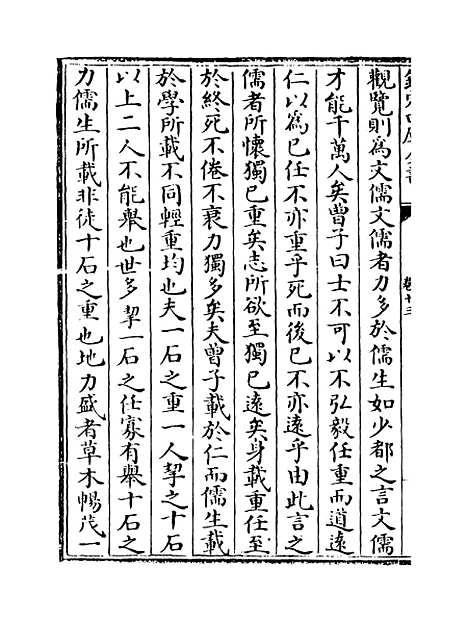 觀覽則為文儒文儒者力多於儒生如少都之言文儒
才能千萬人矣曾子曰士不可以不弘毅任重而道遠
仁以為已任不亦重乎死而後已不亦遠乎由此言之
儒者所懷獨已重矣志所欲至獨已遠矣身載重任至
於終死不倦不衰力獨多矣夫曾子載於仁而儒生載
於學所載不同輕重均也夫一石之重一人挈之十石
以上二人不能舉也世多挈一石之任寡有舉十石之
力儒生所載非徒十石之重也地力盛者草木暢茂一